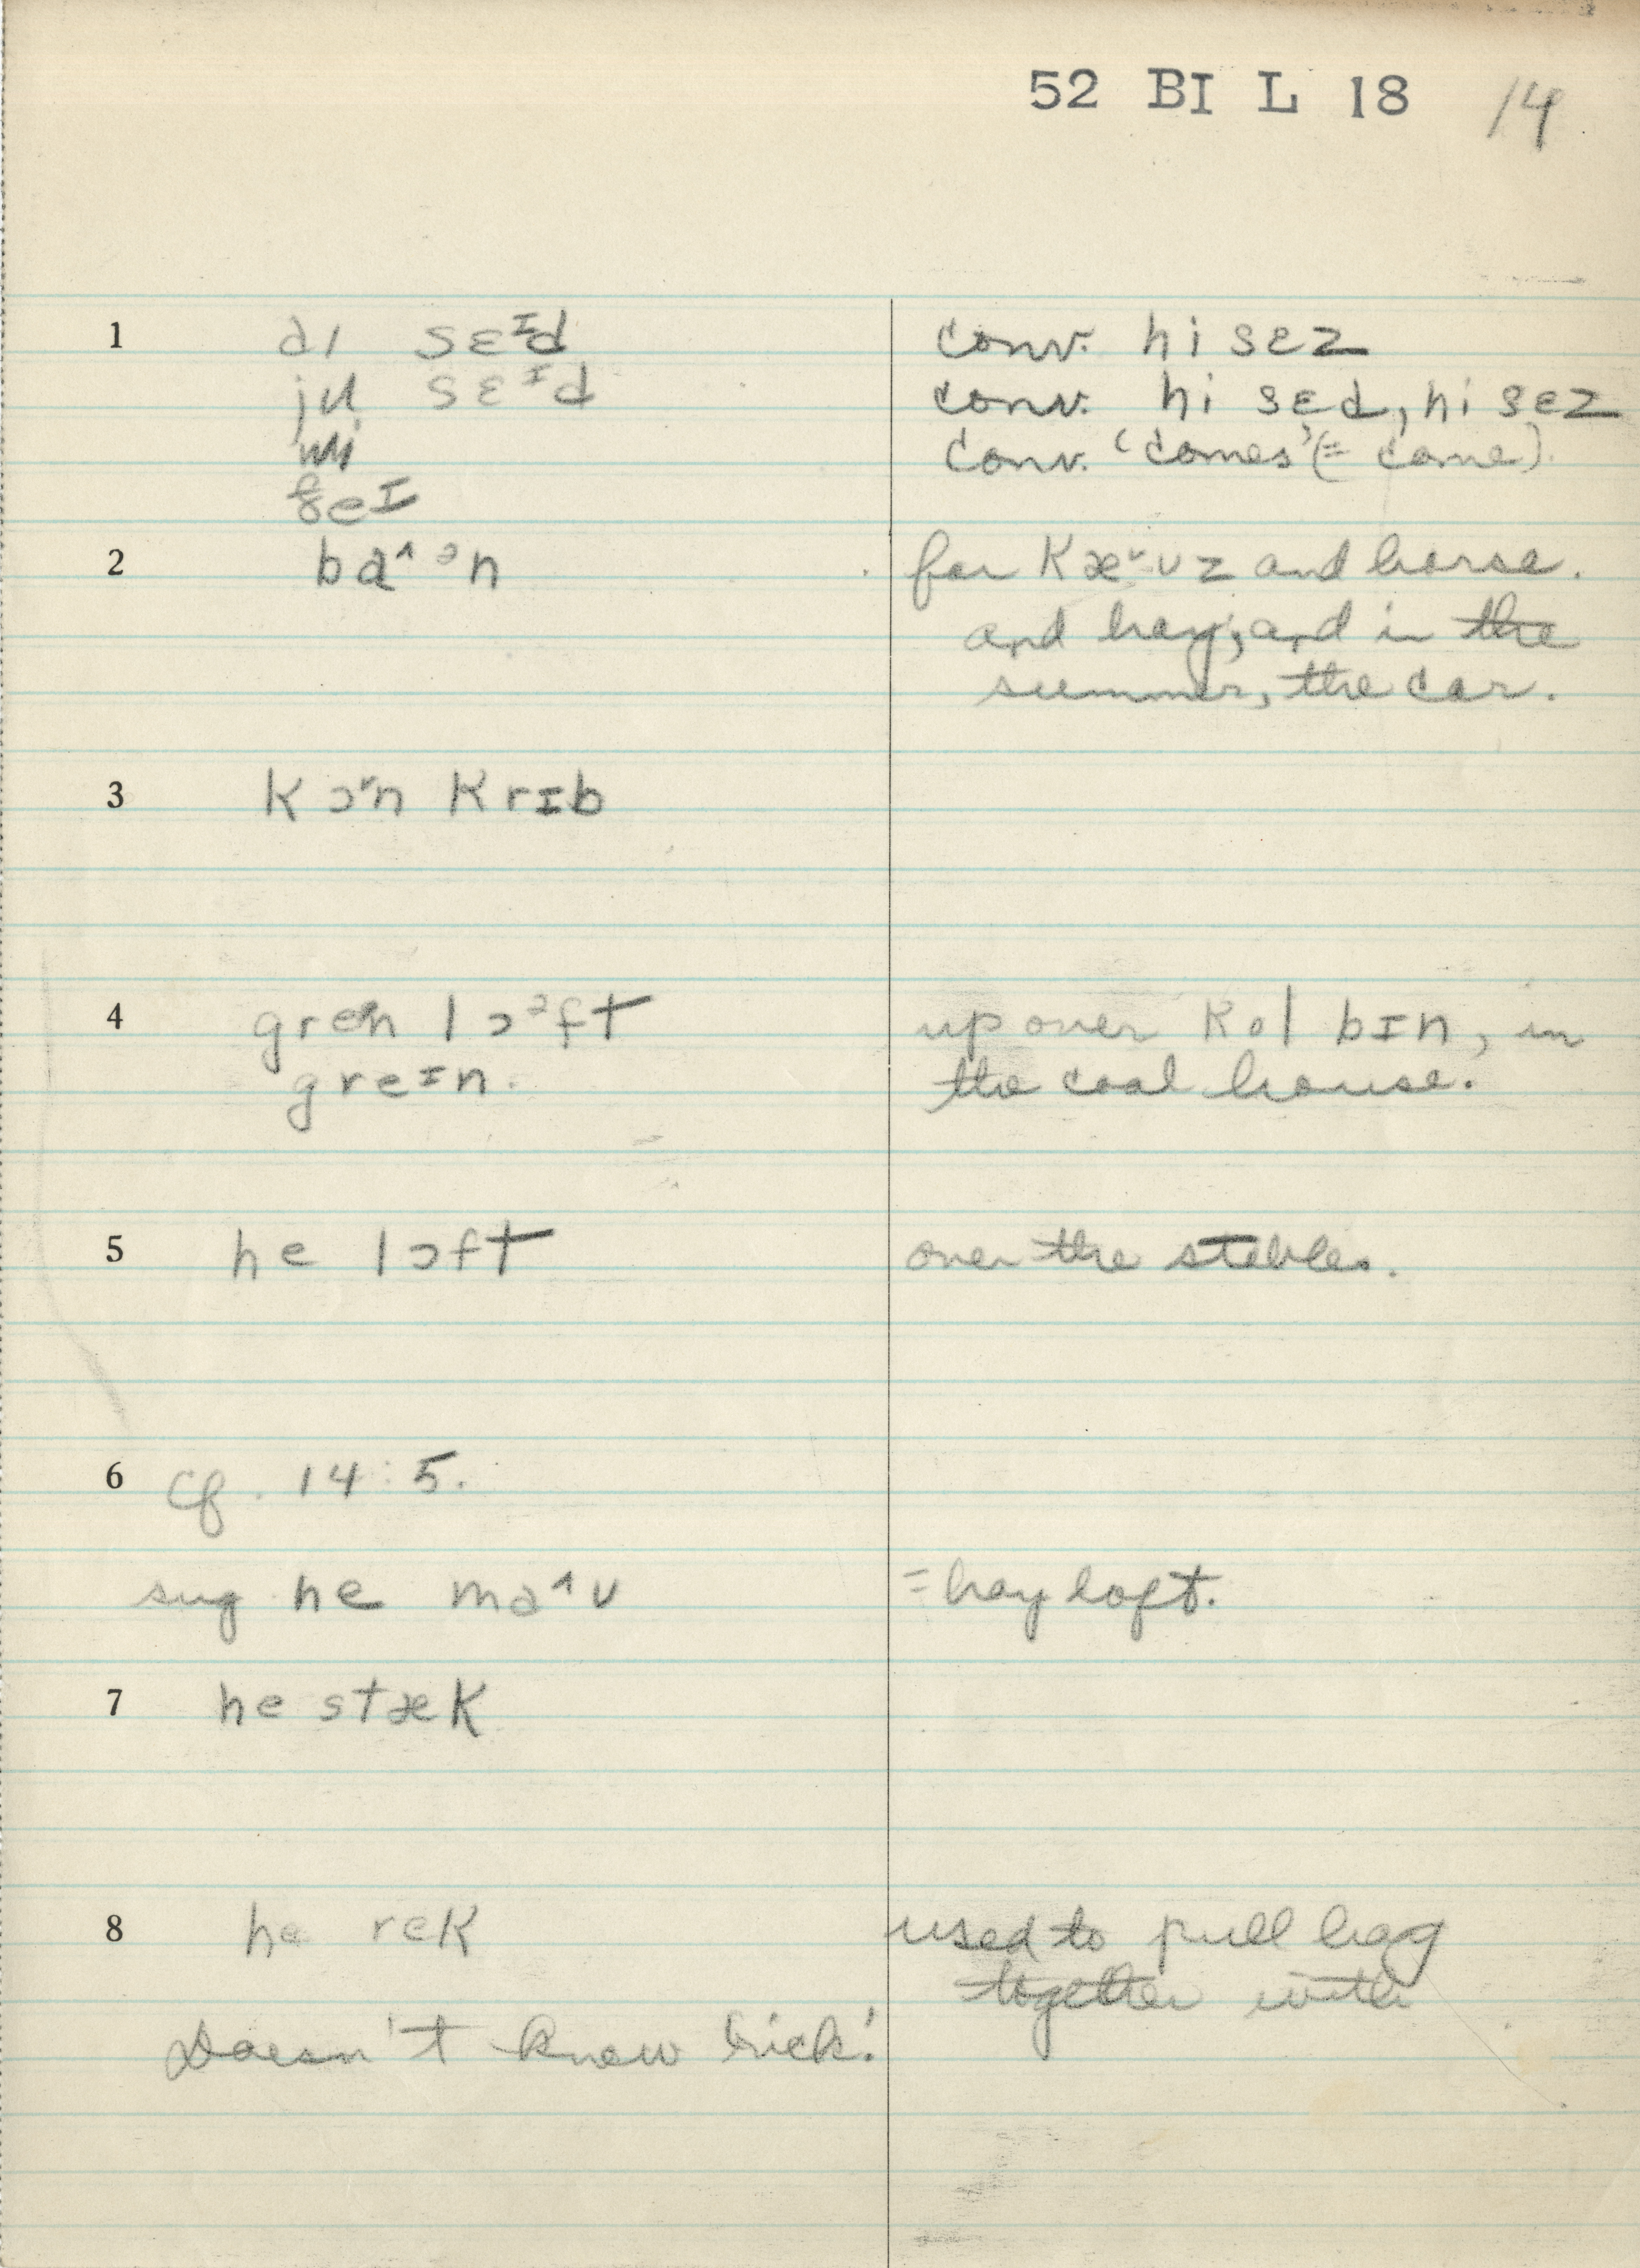 52 BI L 18 14
1 aɪ sɛᶦd conv. hi sɛz
ju sɛᶦd conv. hi sɛd, hi sɛz
wi conv. 'comes' (= came).
ðeɪ
2 ba^ᵊn for Kæ˅ʊz and horse.
and hay, and in the
summer, the car.
3 Kɔ˅n Krɪb
4 gren lɔᵊft up over Kol bɪn, in
greɪn. the coal house.
5 he lɔft over the stables.
6 cf. 14:5.
sug he ma^ʊ = hay loft.
7 he stæK
8 he reK used to pull hay
together with
Doesn't know hick!